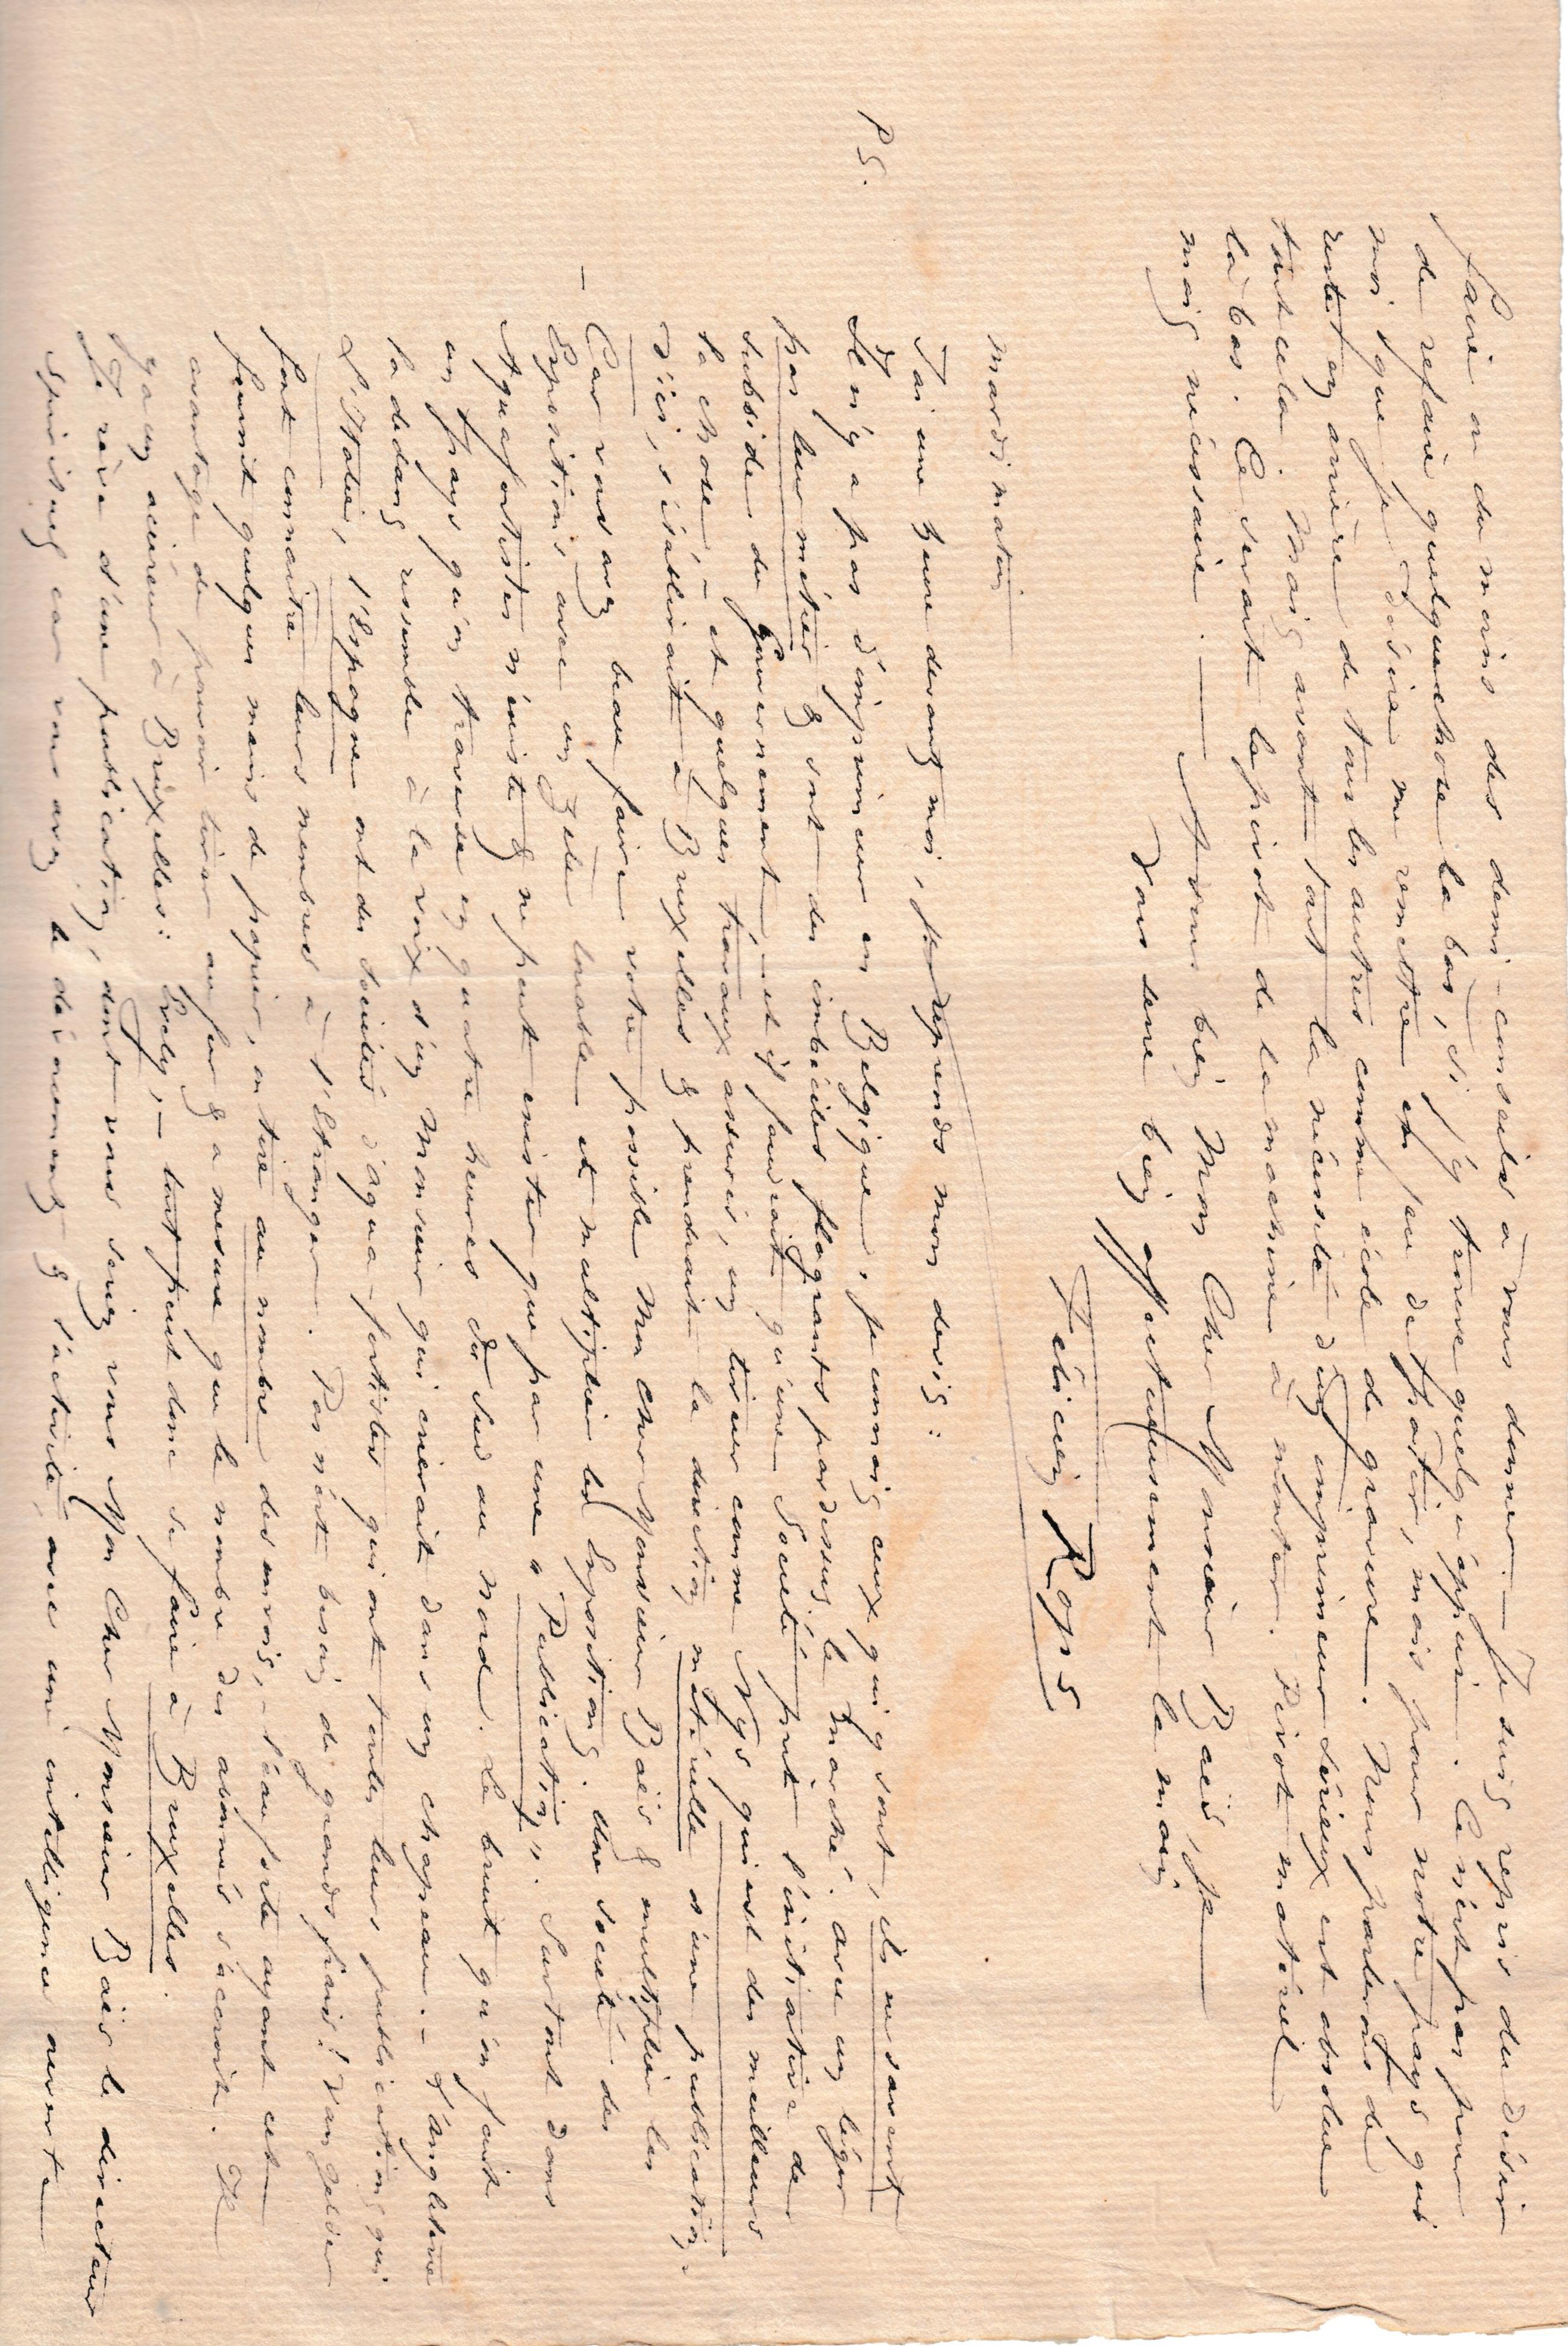 faire ou du moins des demi-conseils à vous donner. — Je suis repris du désir
de refaire quelquechose la bas, si j'y trouve quelqu'appui. Ce n'est pas pour
moi que je désire me remettre au feu de portier, mais pour notre pays qui
reste en arrière de tous les autres comme école de gravure. Nous parlerons de
tout cela. Mais avant tout la nécessité d'un imprimeur sérieux est absolue
là bas. Ce serait le pivot de la machine à monter. Pivot matériel
mais nécessaire. — Adieu bien Mon Cher Monsieur Baës, je
vous serre bien affectueusement la main
Félicien Rops
mardi matin
P S. J'ai une heure devant moi, je reprends mon devis:
Il n'y a pas d'imprimeur en Belgique, je connais ceux qui y sont, ils ne savent
pas leur métier & sont des imbéciles flagrants pardessus le marché. Avec un léger
subside du Gouvernement, et il faudrait qu'une Société prit l'initiative de
la chose, – et quelques travaux assurés, un tireur comme Nys qui est des meilleurs
d'ici, s'établirait à Bruxelles & prendrait la direction matérielle d'une publication.
– Car vous avez beau faire votre possible Mon cher Monsieur Baës & multiplier les
Expositions avec un zèle louable et multiplier les Expositions. Une société des
Aquafortistes n'existe & ne peut exister que par une « Publication ». Surtout dans
un pays qu'on traverse en quatre heures du sud au nord. Le bruit qu'on fait
la dedans ressemble à la voix d'un Monsieur qui crierait dans un chapeau. – L'Angleterre
L'Italie, l'Espagne ont des sociétés d'aqua-fortistes qui ont toutes leurs publications qui
font connaitre leurs membres à l'Etranger. Pas n'est besoin de grands frais! Van Gelder
fournit quelques mains de papier, on tire au nombre des envois, – l'eau forte ayant cet
avantage de pouvoir tirer au fur & a mesure que le nombre des abonnés s'accroit. Il
y a un aciéreur à Bruxelles: Evely; – tout peut donc se faire à Bruxelles.
Je rêve d'une publication, dont vous seriez vous Mon Cher Monsieur Baës le directeur
spirituel car vous avez le dévouement & l'activité, avec une intelligence ouverte